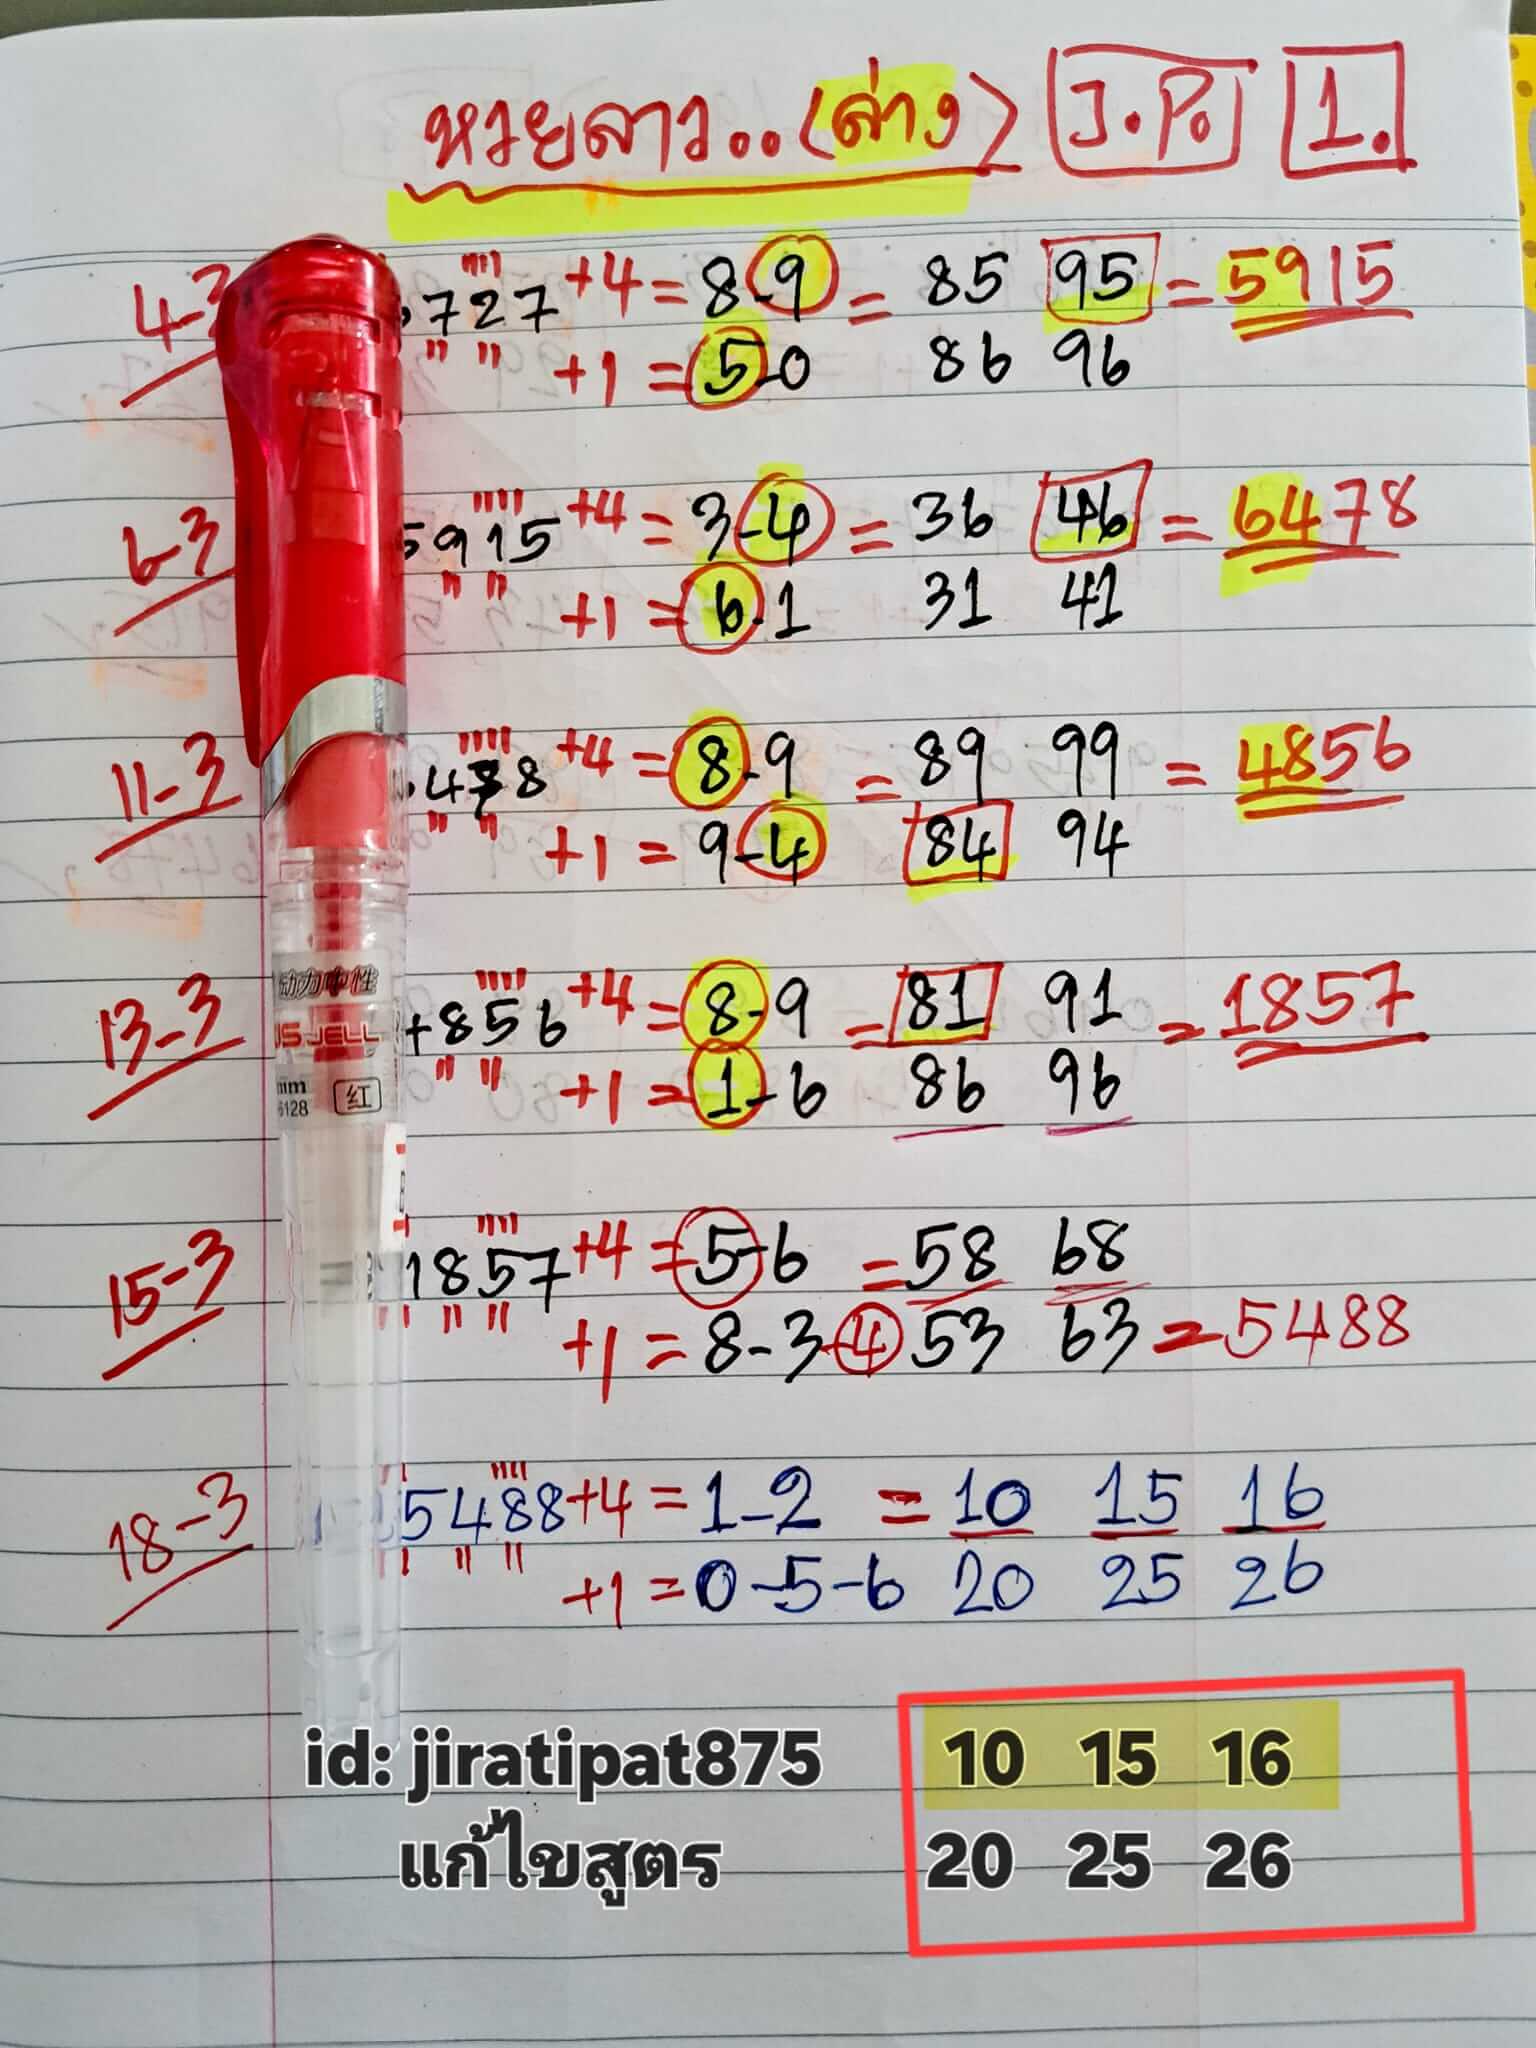 หวยลาว..(ล่าง) J.P. 1.
4-3 727 +4 = 8-9 = 85 95 = 5915
+1 = 5-0 86 96
6-3 5915 +4 = 3-4 = 36 46 = 6478
+1 = 6-1 31 41
11-3 478 +4 = 8-9 = 89 99 = 4856
+1 = 9-4 84 94
13-3 4856 +4 = 8-9 = 81 91 = 1857
+1 = 1-6 86 96
US JELL
mm
6128 红
15-3 1857 +4 = 5-6 = 58 68
+1 = 8-3-4 53 63 = 5488
18-3 5488 +4 = 1-2 = 10 15 16
+1 = 0-5-6 20 25 26
id: jiratipat875 10 15 16
แก้ไขสูตร 20 25 26